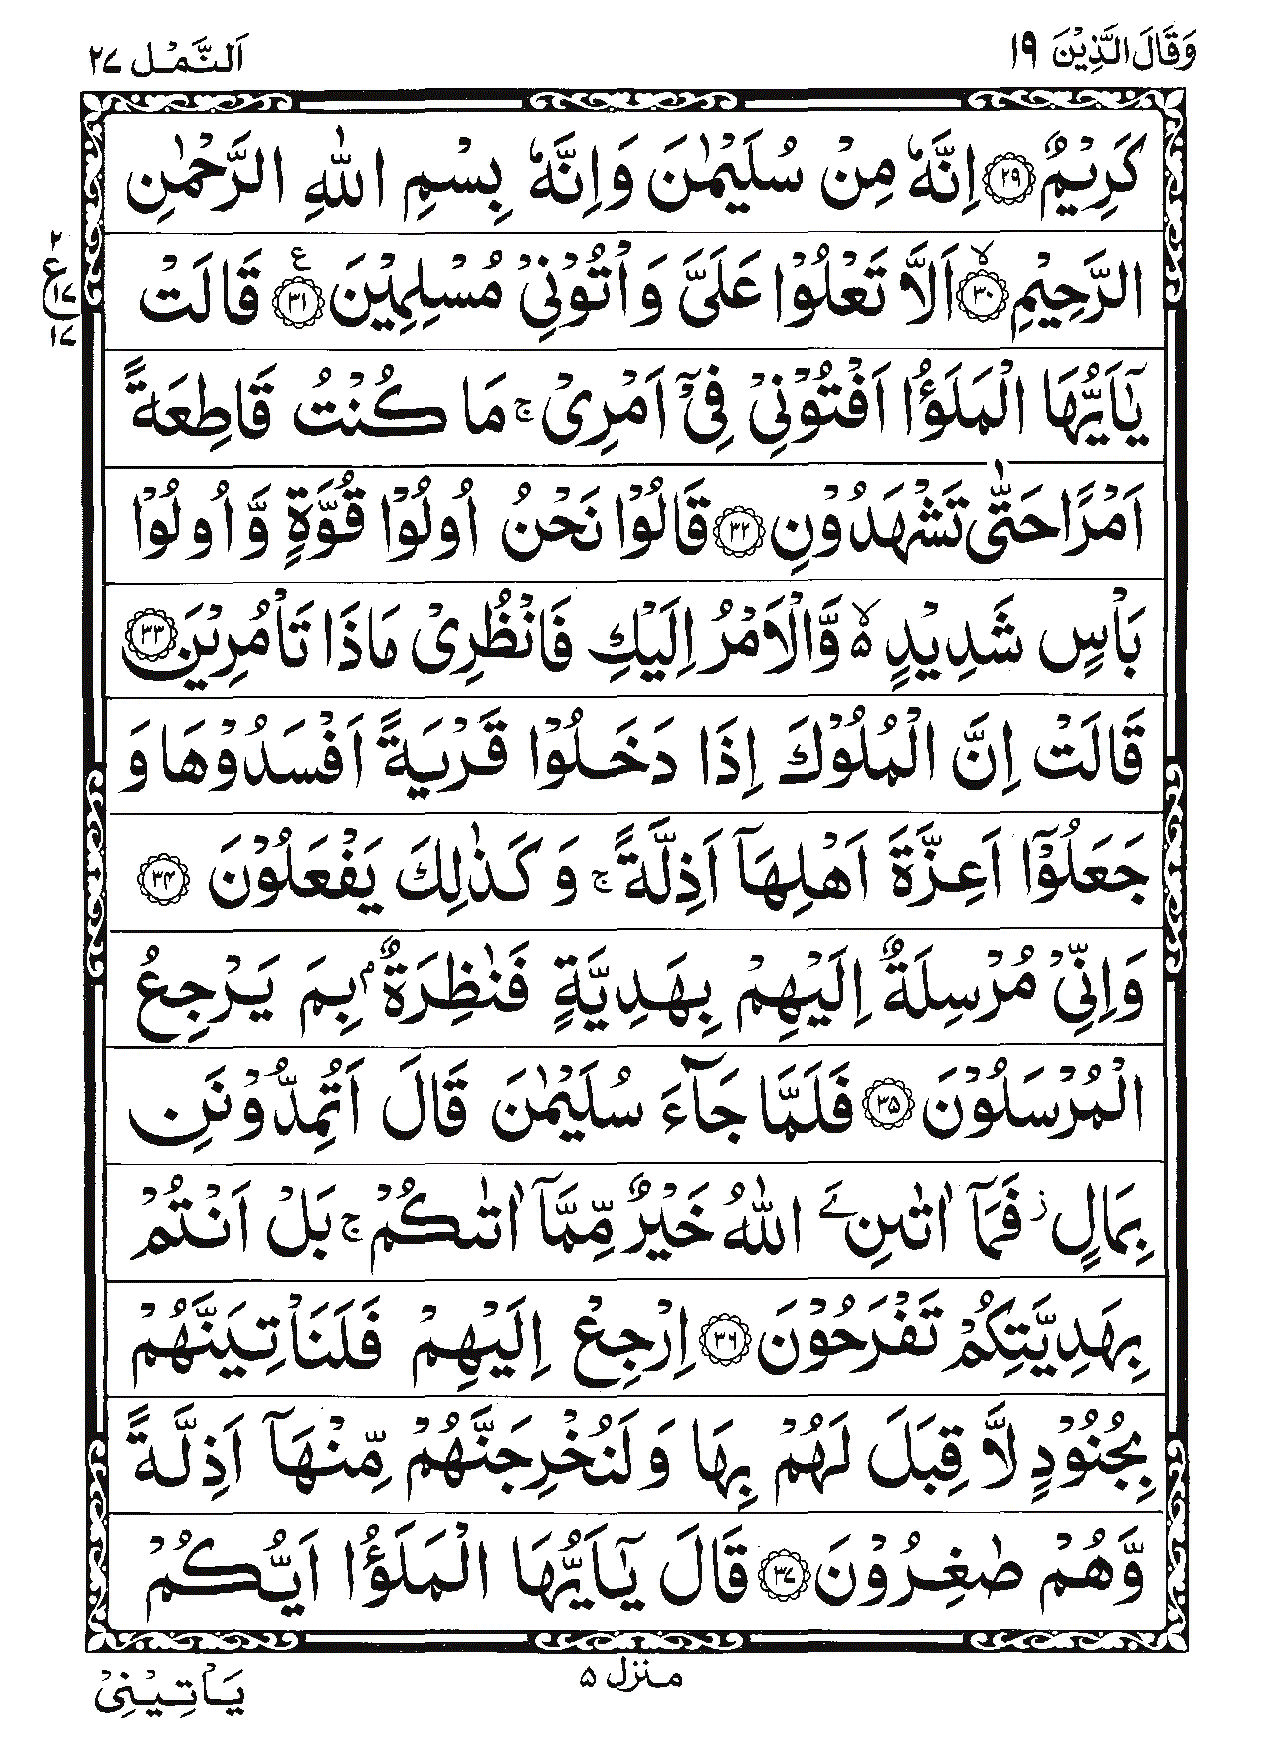 وَقَالَ الَّذِيْنَ ١٩
اَلنَّمْل ٢٧
كَرِيْمٌ ۟۲۹ اِنَّهٗ مِنْ سُلَيْمٰنَ وَاِنَّهٗ بِسْمِ اللّٰهِ الرَّحْمٰنِ
الرَّحِيْمِ ۙ۳۰ اَلَّا تَعْلُوْا عَلَيَّ وَاْتُوْنِيْ مُسْلِمِيْنَ ۳۱ ع قَالَتْ
٢
ع
١٧
١٧
يٰٓاَيُّهَا الْمَلَؤُا اَفْتُوْنِيْ فِيْٓ اَمْرِيْ ۚ مَا كُنْتُ قَاطِعَةً
اَمْرًا حَتّٰى تَشْهَدُوْنِ ۳۲ قَالُوْا نَحْنُ اُولُوْا قُوَّةٍ وَّاُولُوْا
بَاْسٍ شَدِيْدٍ ۙ۵ وَّالْاَمْرُ اِلَيْكِ فَانْظُرِيْ مَاذَا تَاْمُرِيْنَ ۳۳
قَالَتْ اِنَّ الْمُلُوْكَ اِذَا دَخَلُوْا قَرْيَةً اَفْسَدُوْهَا وَ
جَعَلُوْٓا اَعِزَّةَ اَهْلِهَآ اَذِلَّةً ۚ وَكَذٰلِكَ يَفْعَلُوْنَ ۳۴
وَاِنِّيْ مُرْسِلَةٌ اِلَيْهِمْ بِهَدِيَّةٍ فَنٰظِرَةٌۢ بِمَ يَرْجِعُ
الْمُرْسَلُوْنَ ۳۵ فَلَمَّا جَآءَ سُلَيْمٰنَ قَالَ اَتُمِدُّوْنَنِ
بِمَالٍ ؗ فَمَآ اٰتٰىنِۦَ اللّٰهُ خَيْرٌ مِّمَّآ اٰتٰىكُمْ ۚ بَلْ اَنْتُمْ
بِهَدِيَّتِكُمْ تَفْرَحُوْنَ ۳۶ اِرْجِعْ اِلَيْهِمْ فَلَنَاْتِيَنَّهُمْ
بِجُنُوْدٍ لَّا قِبَلَ لَهُمْ بِهَا وَلَنُخْرِجَنَّهُمْ مِّنْهَآ اَذِلَّةً
وَّهُمْ صٰغِرُوْنَ ۳۷ قَالَ يٰٓاَيُّهَا الْمَلَؤُا اَيُّكُمْ
منزل ٥
يَاْتِيْنِيْ